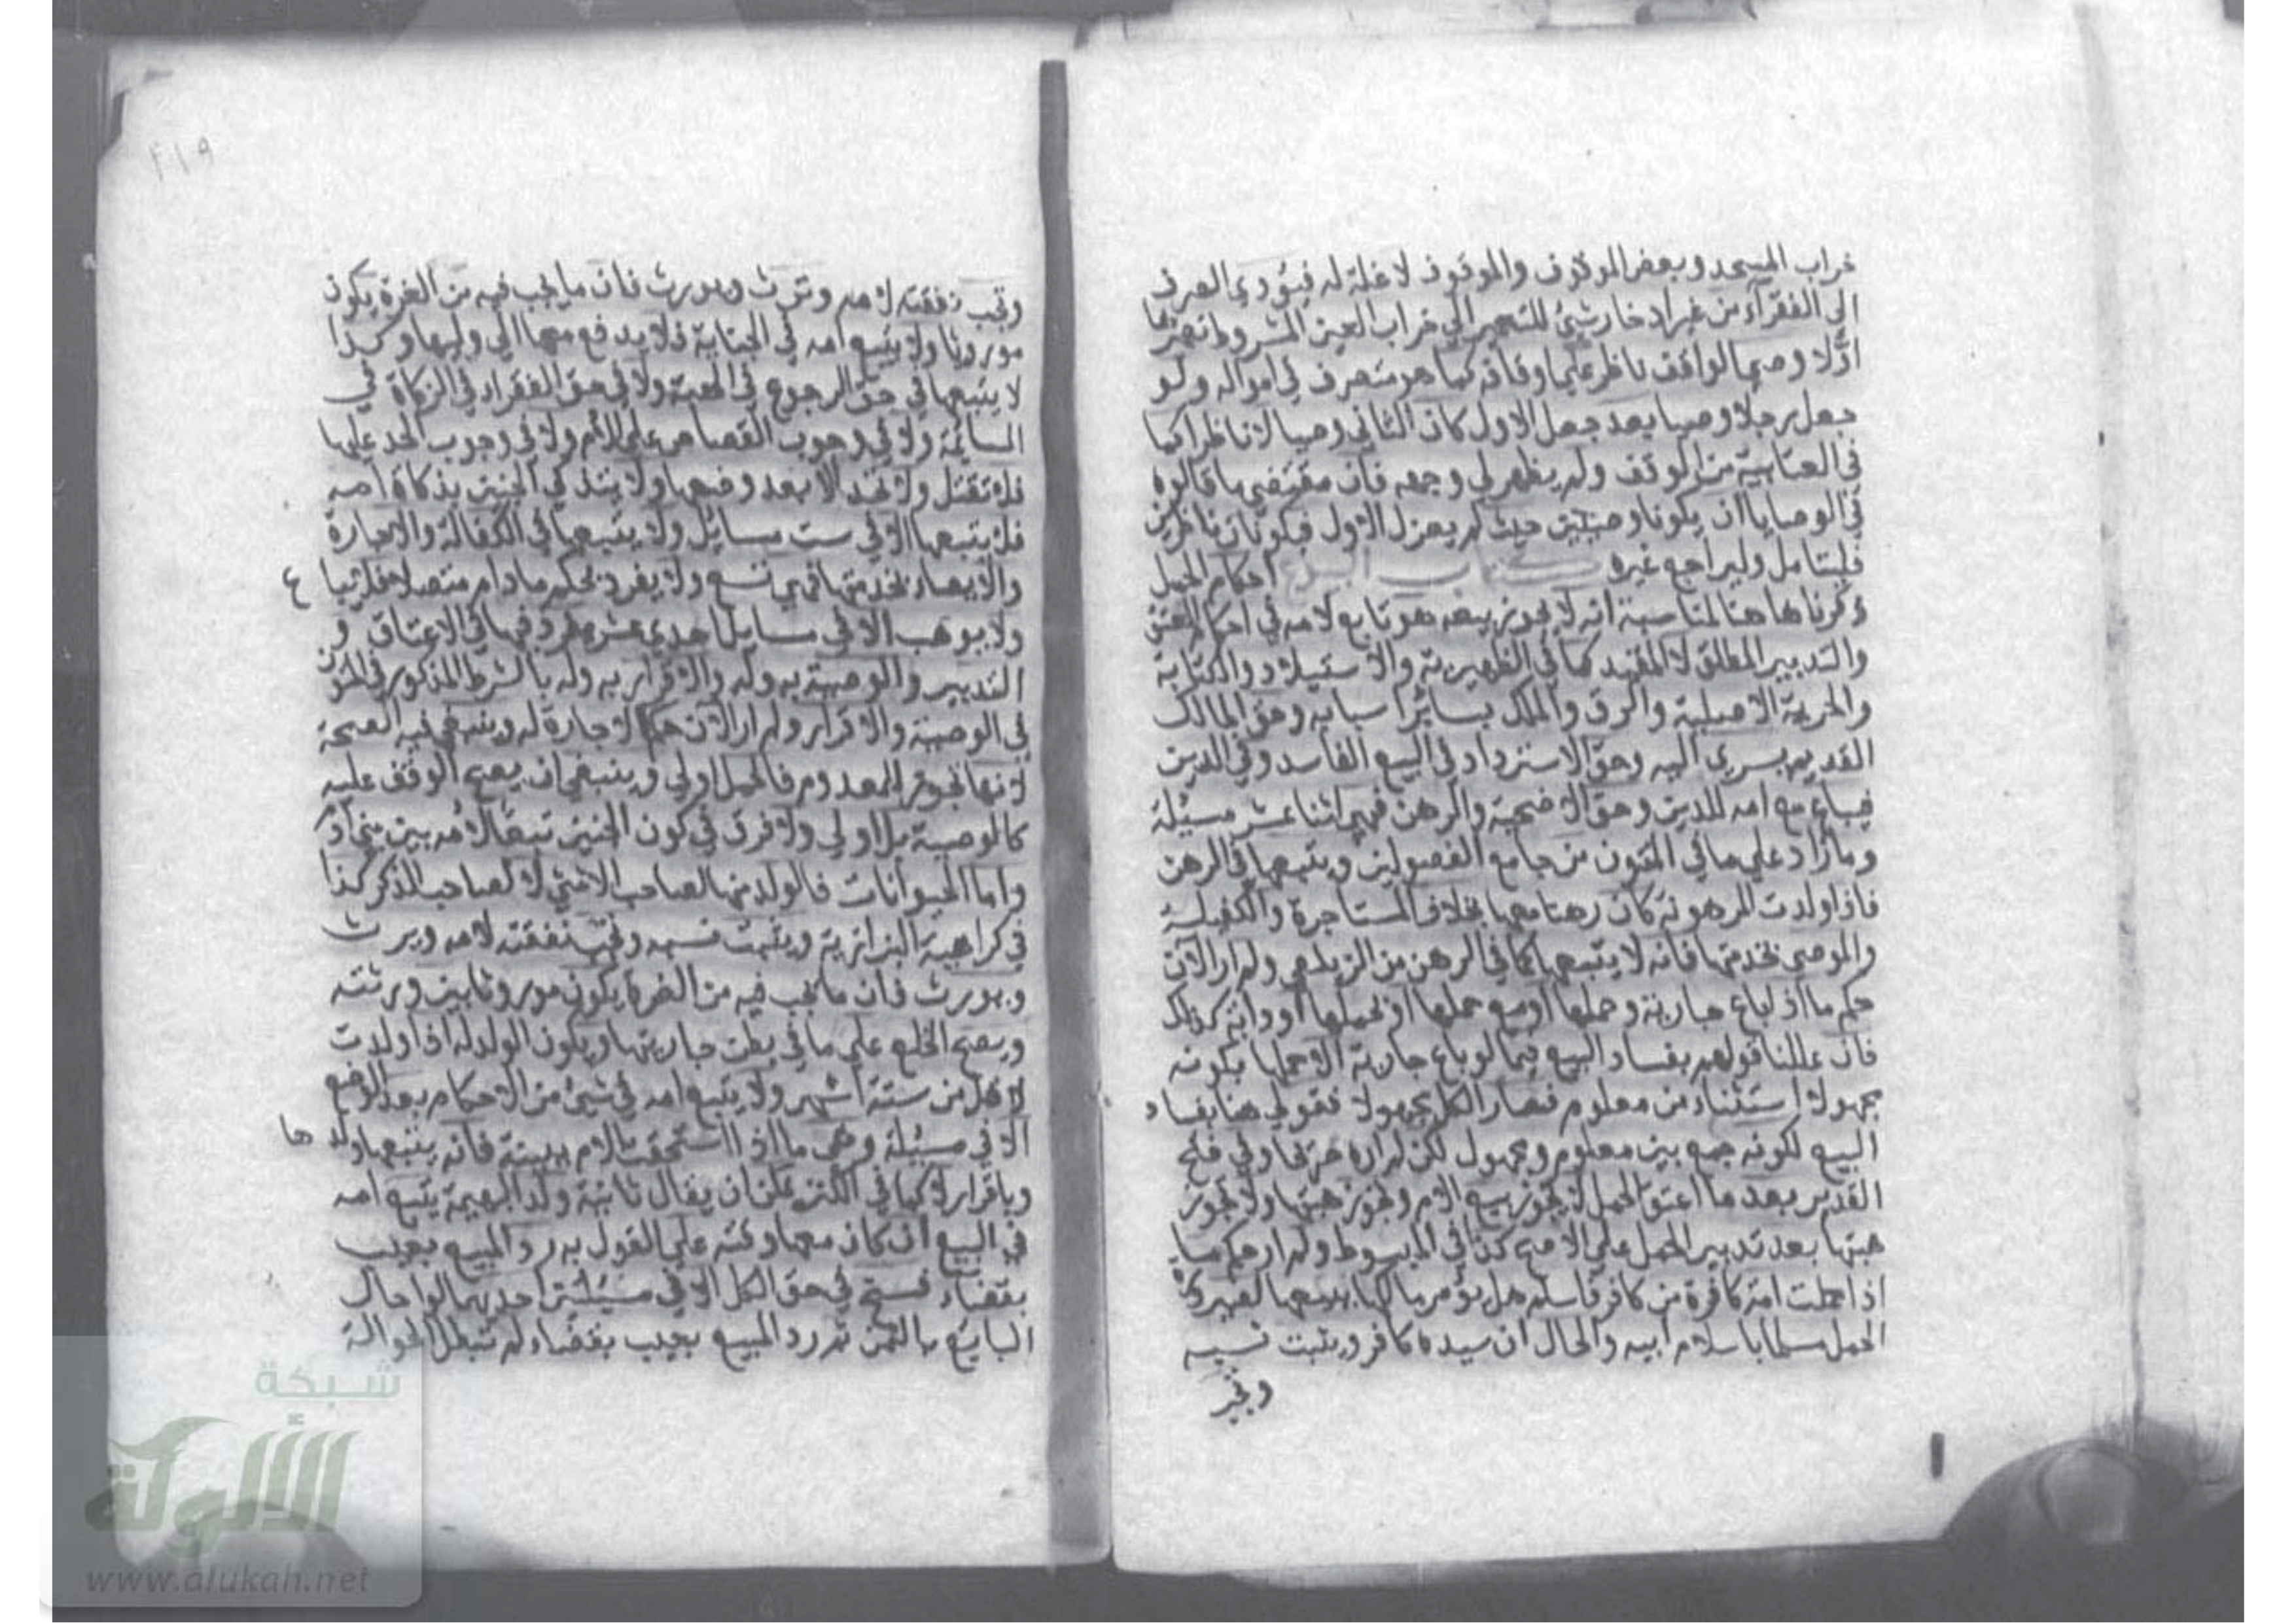 خراب المسجد وبعض الموقوف والموقوف لا غلة له فيؤدي الصرف
الى الفقرآء من غير ادخار شيئ للتعمير الي خراب العين المشروط تعميرها
اوّلا وصيها لواقف ناظر علي اوقافه كما هو متصرف في امواله ولو
جعل رجلا وصيا بعد جعل الاول كان الثاني وصيا لا ناظرا كما
في العتابية من الوقف ولم يظهر لي وجهه فان مقتضي ما قالوه
في الوصايا ان يكونا وصيين حيث لم يعزل الاول فيكونان ناظرين
فليتامل وليراجع غيره كتاب البيوع احكام الحمل
ذكرناها هنا لمناسبة انه لا يجوز بيعه هو تابع لامه في احكام العتق
والتدبير المطلق لا المقيد كما في الظهيرية والاستيلاد والكتابة
والحرية الاصلية والرق والملك بسائر اسبابه وحق المالك
القديم يسري اليه وحق الاسترداد في البيع الفاسد وفي الدين
فيباع مع امه للدين وحق الاضحية والرهن فهي اثنا عشر مسئلة
وما زاد علي ما في المتون من جامع الفصولين ويتبعها في الرهن
فاذا ولدت المرهونة كان رهنا معها بخلاف المستاجرة والكفيلة
والموصي بخدمتها فانه لا يتبعها كما في الرهن من الزيلعي ولم ار الآن
حكم ما اذا باع جارية وحملها او مع حملها او بحملها او دابة كذلك
فان عللنا قولهم بفساد البيع فيما لو باع جارية الا حملها بكونه
مجهولا استثناء من معلوم فصار الكل مجهولا فقولي هنا بفساد
البيع لكونه جمع بين معلوم ومجهول لكن لم اره صريحا وفي فتح
القدير بعد ما اعتق الحمل لا يجوز بيع الام وتجوز هبتها ولا تجوز
هبتها بعد تدبير الحمل علي الاصح كذا في المبسوط ولم ار حكم ما
اذا حملت امة كافرة من كافر فاسلم هل يؤمر مالكها ببيعها لصيرورة
الحمل مسلما باسلام ابيه والحال ان سيده كافر ويثبت نسبه
وتجب
٢١٩
وتجب نفقته لامه وترث ويورث فان ما يجب فيه من الغرة يكون
موروثا ولا يتبع امه في الجناية فلا يدفع معها الي وليها وكذا
لا يتبعها في حق الرجوع في الهبة ولا في حق الفقراء في الزكاة في
السائمة ولا في وجوب القصاص علي الام ولا في وجوب الحد عليها
فلا تقتل ولا تحد الا بعد وضعها ولا يتذكي الجنين بذكاة امه
فلا يتبعها الا في ست مسايل ولا يتبعها في الكفالة والاجارة
والايصاء بخدمتها فهي تسع ولا يفرد بحكم ما دام متصلا فلا يبا ع
ولا يوهب الا في مسايل احدي عشرة يفرد فيها في الاعتاق و
التدبير والوصية به وله والاقرار به وله بالشرط المذكور في المتون
في الوصية والاقرار ولم ار الآن حكم الاجارة له وينبغي فيه الصحة
لانها تجوز للمعدوم فالحمل اولي وينبغي ان يصح الوقف عليه
كالوصية بل اولي ولا فرق في كون الجنين تبعا لامه بين بني آدم
واما الحيوانات فالولد منها لصاحب الانثي لا لصاحب الذكر كذا
في كراهية البزازية ويثبت نسبه وتجب نفقته لامه ويرث
ويورث فان ما يجب فيه من الغرة يكون موروثا بين ورثته
ويصح الخلع علي ما في بطن جاريتها ويكون الولد له اذا ولدت
لاقل من ستة اشهر ولا يتبع امه في شيئ من الاحكام بعد الوضع
الا في مسئلة وهي ما اذا استحقت الام ببينة فانه يتبعها ولد ها
وباقرار لا كما في الكنز يمكن ان يقال ثانية ولد البهيمة يتبع امه
في البيع ان كان معها وقته علي القول به رد المبيع بعيب
بقضاء فسخ في حق الكل الا في مسئلتين احديهما لو احال
البايع بالثمن ثم رد المبيع بعيب بقضاء لم تبطل الحوالة
شبكة
الألوكة
www.alukah.net